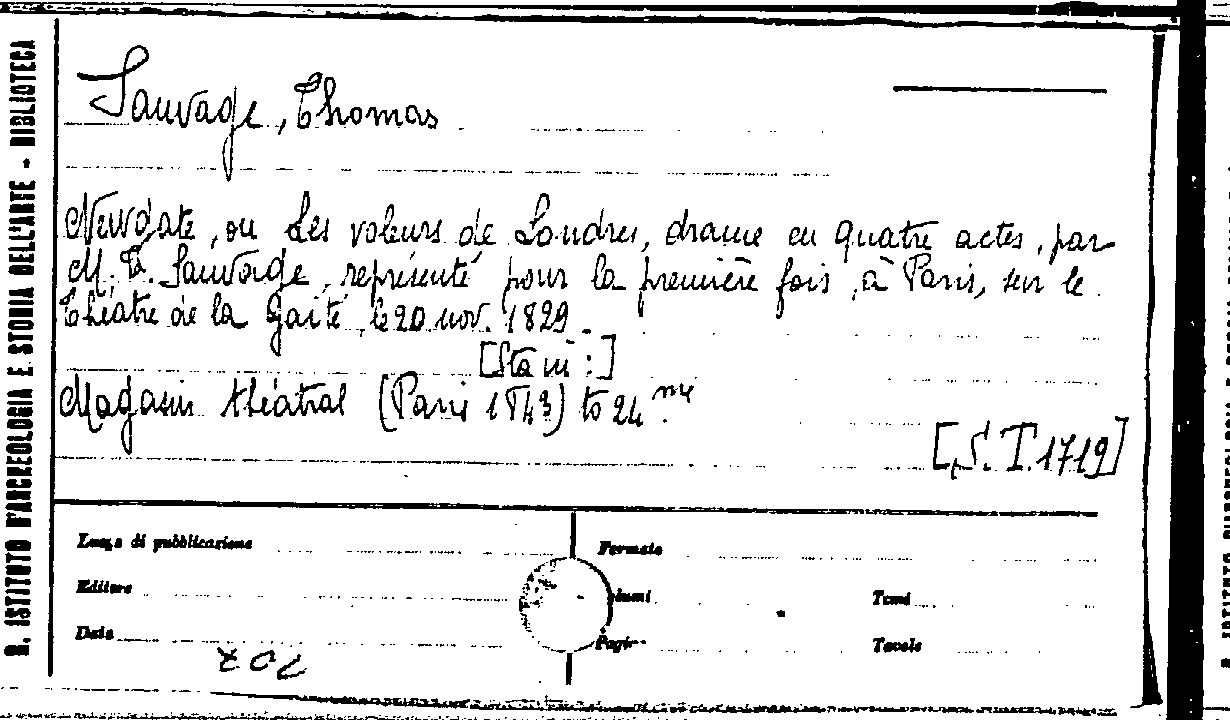 R. ISTITUTO D'ARCHEOLOGIA E STORIA DELL'ARTE - BIBLIOTECA
Sauvage, Thomas
Newgate, ou Les voleurs de Londres, drame en quatre actes, par
M. T. Sauvage, représenté pour la première fois, à Paris, sur le
théâtre de la Gaité, le 20 nov. 1829.
[Sta in:]
Magasin théâtral (Paris 1843) to 24.me
[S.T.1719]
Luogo di pubblicazione
Formato
Editore
Tomi
Data
Tavole